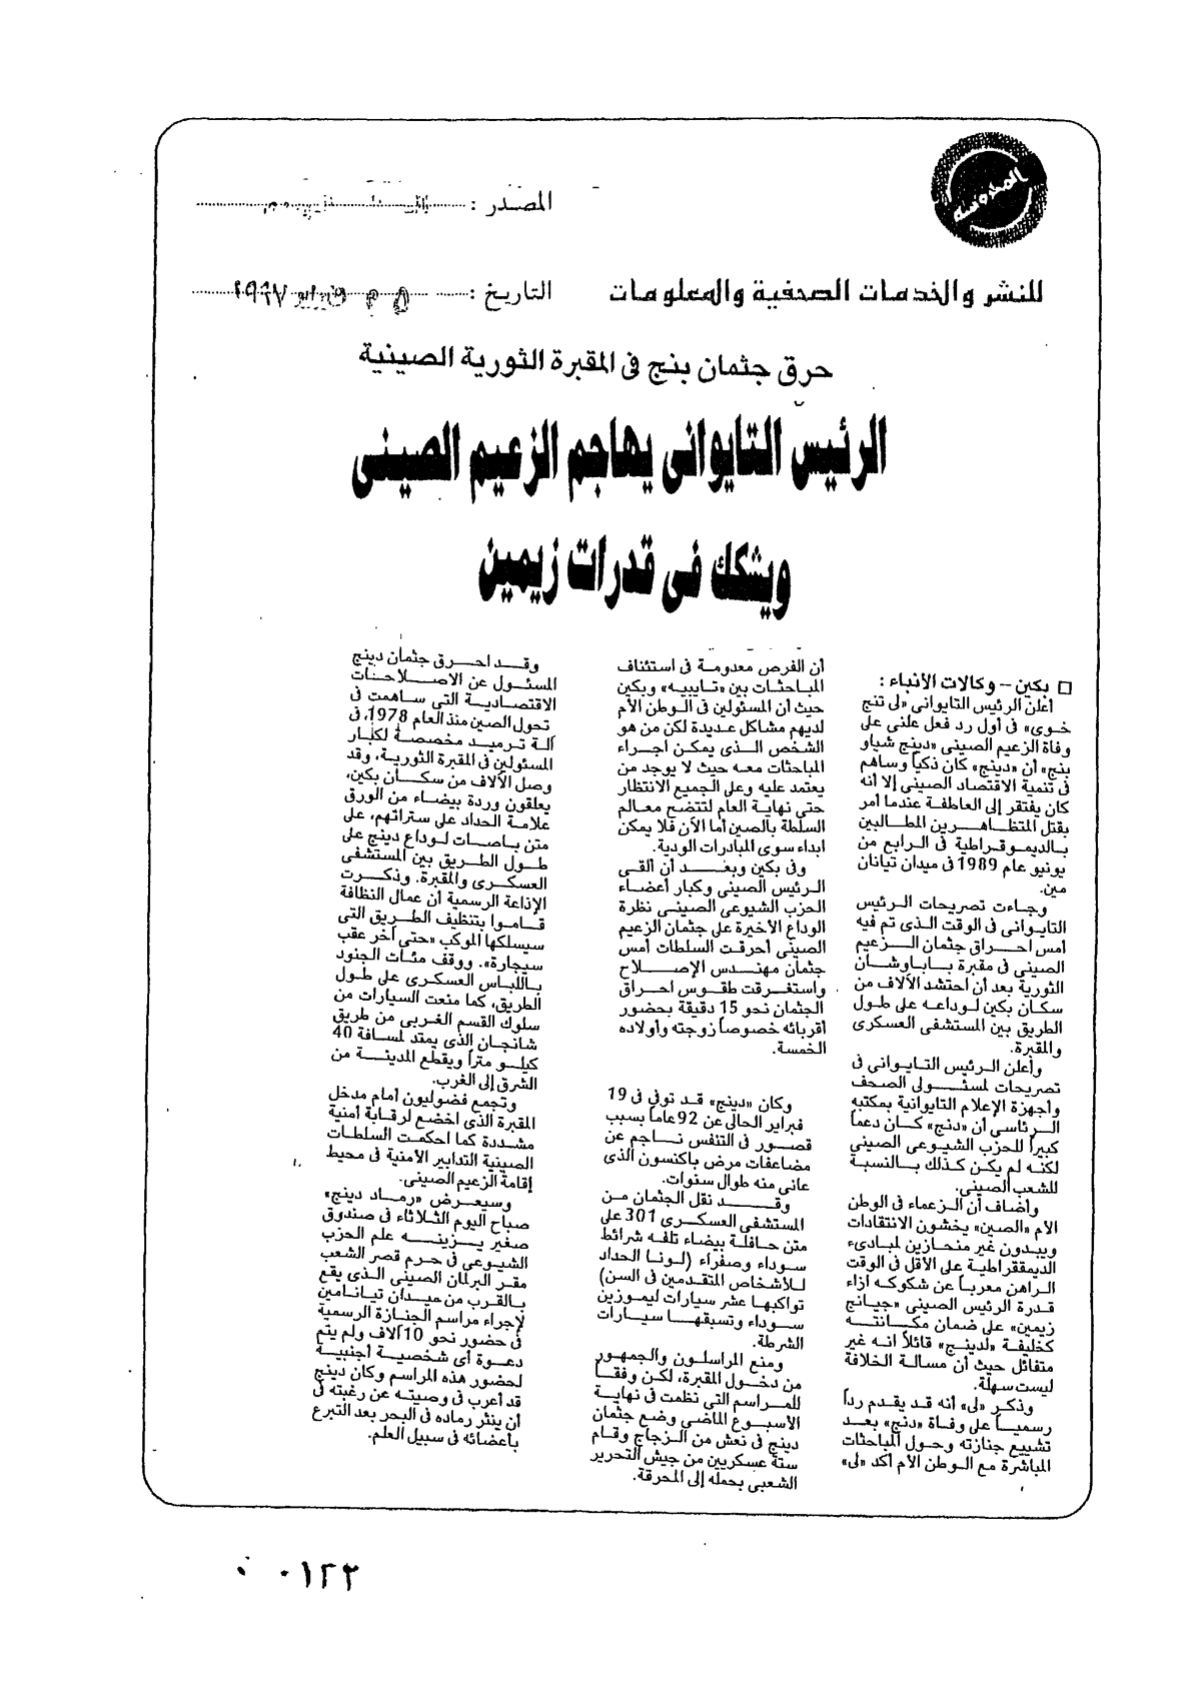 المحروسة
المصدر :
للنشر والخدمات الصحفية والمعلومات
التاريخ : ٢٥ فبراير ١٩٩٧
حرق جثمان بنج فى المقبرة الثورية الصينية
الرئيس التايوانى يهاجم الزعيم الصينى
ويشكك فى قدرات زيمين
□ بكين – وكالات الأنباء :
أعلن الرئيس التايوانى «لى تنج
خوى» فى أول رد فعل علنى على
وفاة الزعيم الصينى «دينج شياو
بنج» أن «دينج» كان ذكياً وساهم
فى تنمية الاقتصاد الصينى إلا أنه
كان يفتقر إلى العاطفة عندما أمر
بقتل المتظاهرين المطالبين
بالديموقراطية فى الرابع من
يونيو عام 1989 فى ميدان تيانان
مين.
وجاءت تصريحات الرئيس
التايوانى فى الوقت الذى تم فيه
أمس احراق جثمان الزعيم
الصينى فى مقبرة باباوشان
الثورية بعد أن احتشد الآلاف من
سكان بكين لوداعه على طول
الطريق بين المستشفى العسكرى
والمقبرة.
وأعلن الرئيس التايوانى فى
تصريحات لمسئولى الصحف
وأجهزة الإعلام التايوانية بمكتبه
الرئاسى أن «دنج» كان دعماً
كبيراً للحزب الشيوعى الصينى
لكنه لم يكن كذلك بالنسبة
للشعب الصينى.
وأضاف أن الزعماء فى الوطن
الأم «الصين» يخشون الانتقادات
ويبدون غير منحازين لمبادىء
الديمقراطية على الأقل فى الوقت
الراهن معرباً عن شكوكه ازاء
قدرة الرئيس الصينى «جيانج
زيمين» على ضمان مكانته
كخليفة «لدينج» قائلاً انه غير
متفائل حيث أن مسالة الخلافة
ليست سهلة.
وذكر «لى» أنه قد يقدم رداً
رسمياً على وفاة «دنج» بعد
تشييع جنازته وحول المباحثات
المباشرة مع الوطن الأم أكد «لى»
أن الفرص معدومة فى استئناف
المباحثات بين «تايبيه» وبكين
حيث أن المسئولين فى الوطن الأم
لديهم مشاكل عديدة لكن من هو
الشخص الذى يمكن اجراء
المباحثات معه حيث لا يوجد من
يعتمد عليه وعلى الجميع الانتظار
حتى نهاية العام لتتضح معالم
السلطة بالصين أما الآن فلا يمكن
ابداء سوى المبادرات الودية.
وفى بكين وبعد أن ألقى
الرئيس الصينى وكبار أعضاء
الحزب الشيوعى الصينى نظرة
الوداع الأخيرة على جثمان الزعيم
الصينى أحرقت السلطات أمس
جثمان مهندس الإصلاح
واستغرقت طقوس احراق
الجثمان نحو 15 دقيقة بحضور
أقربائه خصوصاً زوجته وأولاده
الخمسة.
وكان «دينج» قد توفى فى 19
فبراير الحالى عن 92 عاماً بسبب
قصور فى التنفس ناجم عن
مضاعفات مرض باكنسون الذى
عانى منه طوال سنوات.
وقد نقل الجثمان من
المستشفى العسكرى 301 على
متن حافلة بيضاء تلفه شرائط
سوداء وصفراء (لونا الحداد
للأشخاص المتقدمين فى السن)
تواكبها عشر سيارات ليموزين
سوداء وتسبقها سيارات
الشرطة.
ومنع المراسلون والجمهور
من دخول المقبرة، لكن وفقاً
للمراسم التى نظمت فى نهاية
الأسبوع الماضى وضع جثمان
دينج فى نعش من الزجاج وقام
ستة عسكريين من جيش التحرير
الشعبى بحمله إلى المحرقة.
وقد احرق جثمان دينج
المسئول عن الاصلاحات
الاقتصادية التى ساهمت فى
تحول الصين منذ العام 1978، فى
آلة ترميد مخصصة لكبار
المسئولين فى المقبرة الثورية، وقد
وصل الآلاف من سكان بكين،
يعلقون وردة بيضاء من الورق
علامة الحداد على ستراتهم، على
متن باصات لوداع دينج على
طول الطريق بين المستشفى
العسكرى والمقبرة. وذكرت
الإذاعة الرسمية أن عمال النظافة
قاموا بتنظيف الطريق التى
سيسلكها الموكب «حتى آخر عقب
سيجارة». ووقف مئات الجنود
باللباس العسكرى على طول
الطريق، كما منعت السيارات من
سلوك القسم الغربى من طريق
شانجان الذى يمتد لمسافة 40
كيلو متراً ويقطع المدينة من
الشرق إلى الغرب.
وتجمع فضوليون أمام مدخل
المقبرة الذى اخضع لرقابة أمنية
مشددة كما احكمت السلطات
الصينية التدابير الأمنية فى محيط
إقامة الزعيم الصينى.
وسيعرض «رماد دينج»
صباح اليوم الثلاثاء فى صندوق
صغير يزينه علم الحزب
الشيوعى فى حرم قصر الشعب
مقر البرلمان الصينى الذى يقع
بالقرب من ميدان تيانامين
لإجراء مراسم الجنازة الرسمية
فى حضور نحو 10 آلاف ولم يتم
دعوة أى شخصية أجنبية
لحضور هذه المراسم وكان دينج
قد أعرب فى وصيته عن رغبته فى
أن ينثر رماده فى البحر بعد التبرع
بأعضائه فى سبيل العلم.
٠٠١٢٢